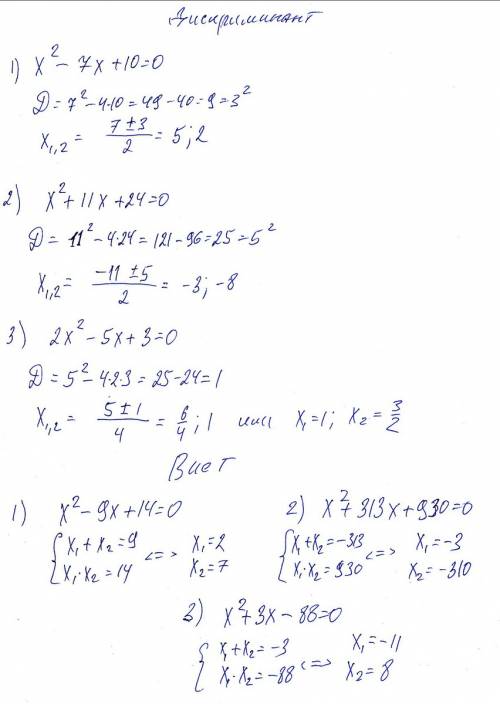 Дискриминант
1) x² − 7x + 10 = 0
D = 7² − 4·10 = 49 − 40 = 9 = 3²
x₁,₂ = (7 ± 3)/2 = 5; 2
2) x² + 11x + 24 = 0
D = 11² − 4·24 = 121 − 96 = 25 = 5²
x₁,₂ = (−11 ± 5)/2 = −3; −8
3) 2x² − 5x + 3 = 0
D = 5² − 4·2·3 = 25 − 24 = 1
x₁,₂ = (5 ± 1)/4 = 6/4; 1 или x₁ = 1; x₂ = 3/2
Виет
1) x² − 9x + 14 = 0
{ x₁ + x₂ = 9 <=> x₁ = 2
x₁·x₂ = 14 x₂ = 7
2) x² + 313x + 930 = 0
{ x₁ + x₂ = −313 <=> x₁ = −3
x₁·x₂ = 930 x₂ = −310
3) x² + 3x − 88 = 0
{ x₁ + x₂ = −3 <=> x₁ = −11
x₁·x₂ = −88 x₂ = 8